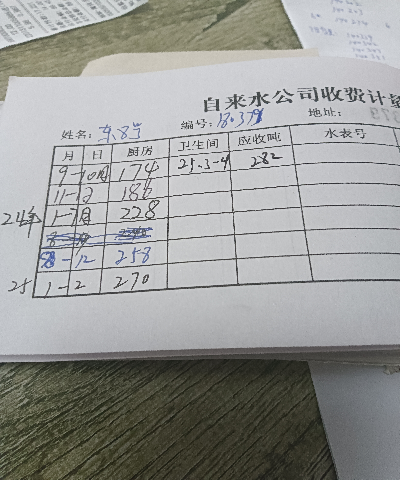 自来水公司收费计
姓名: 东8号 编号: 18.379 地址:
月 日 厨房 卫生间 应收吨 水表号
9-10月 174 25.3-4 282
11-12 186
24年 1-7月 228
8-12 258
25 1-2 270